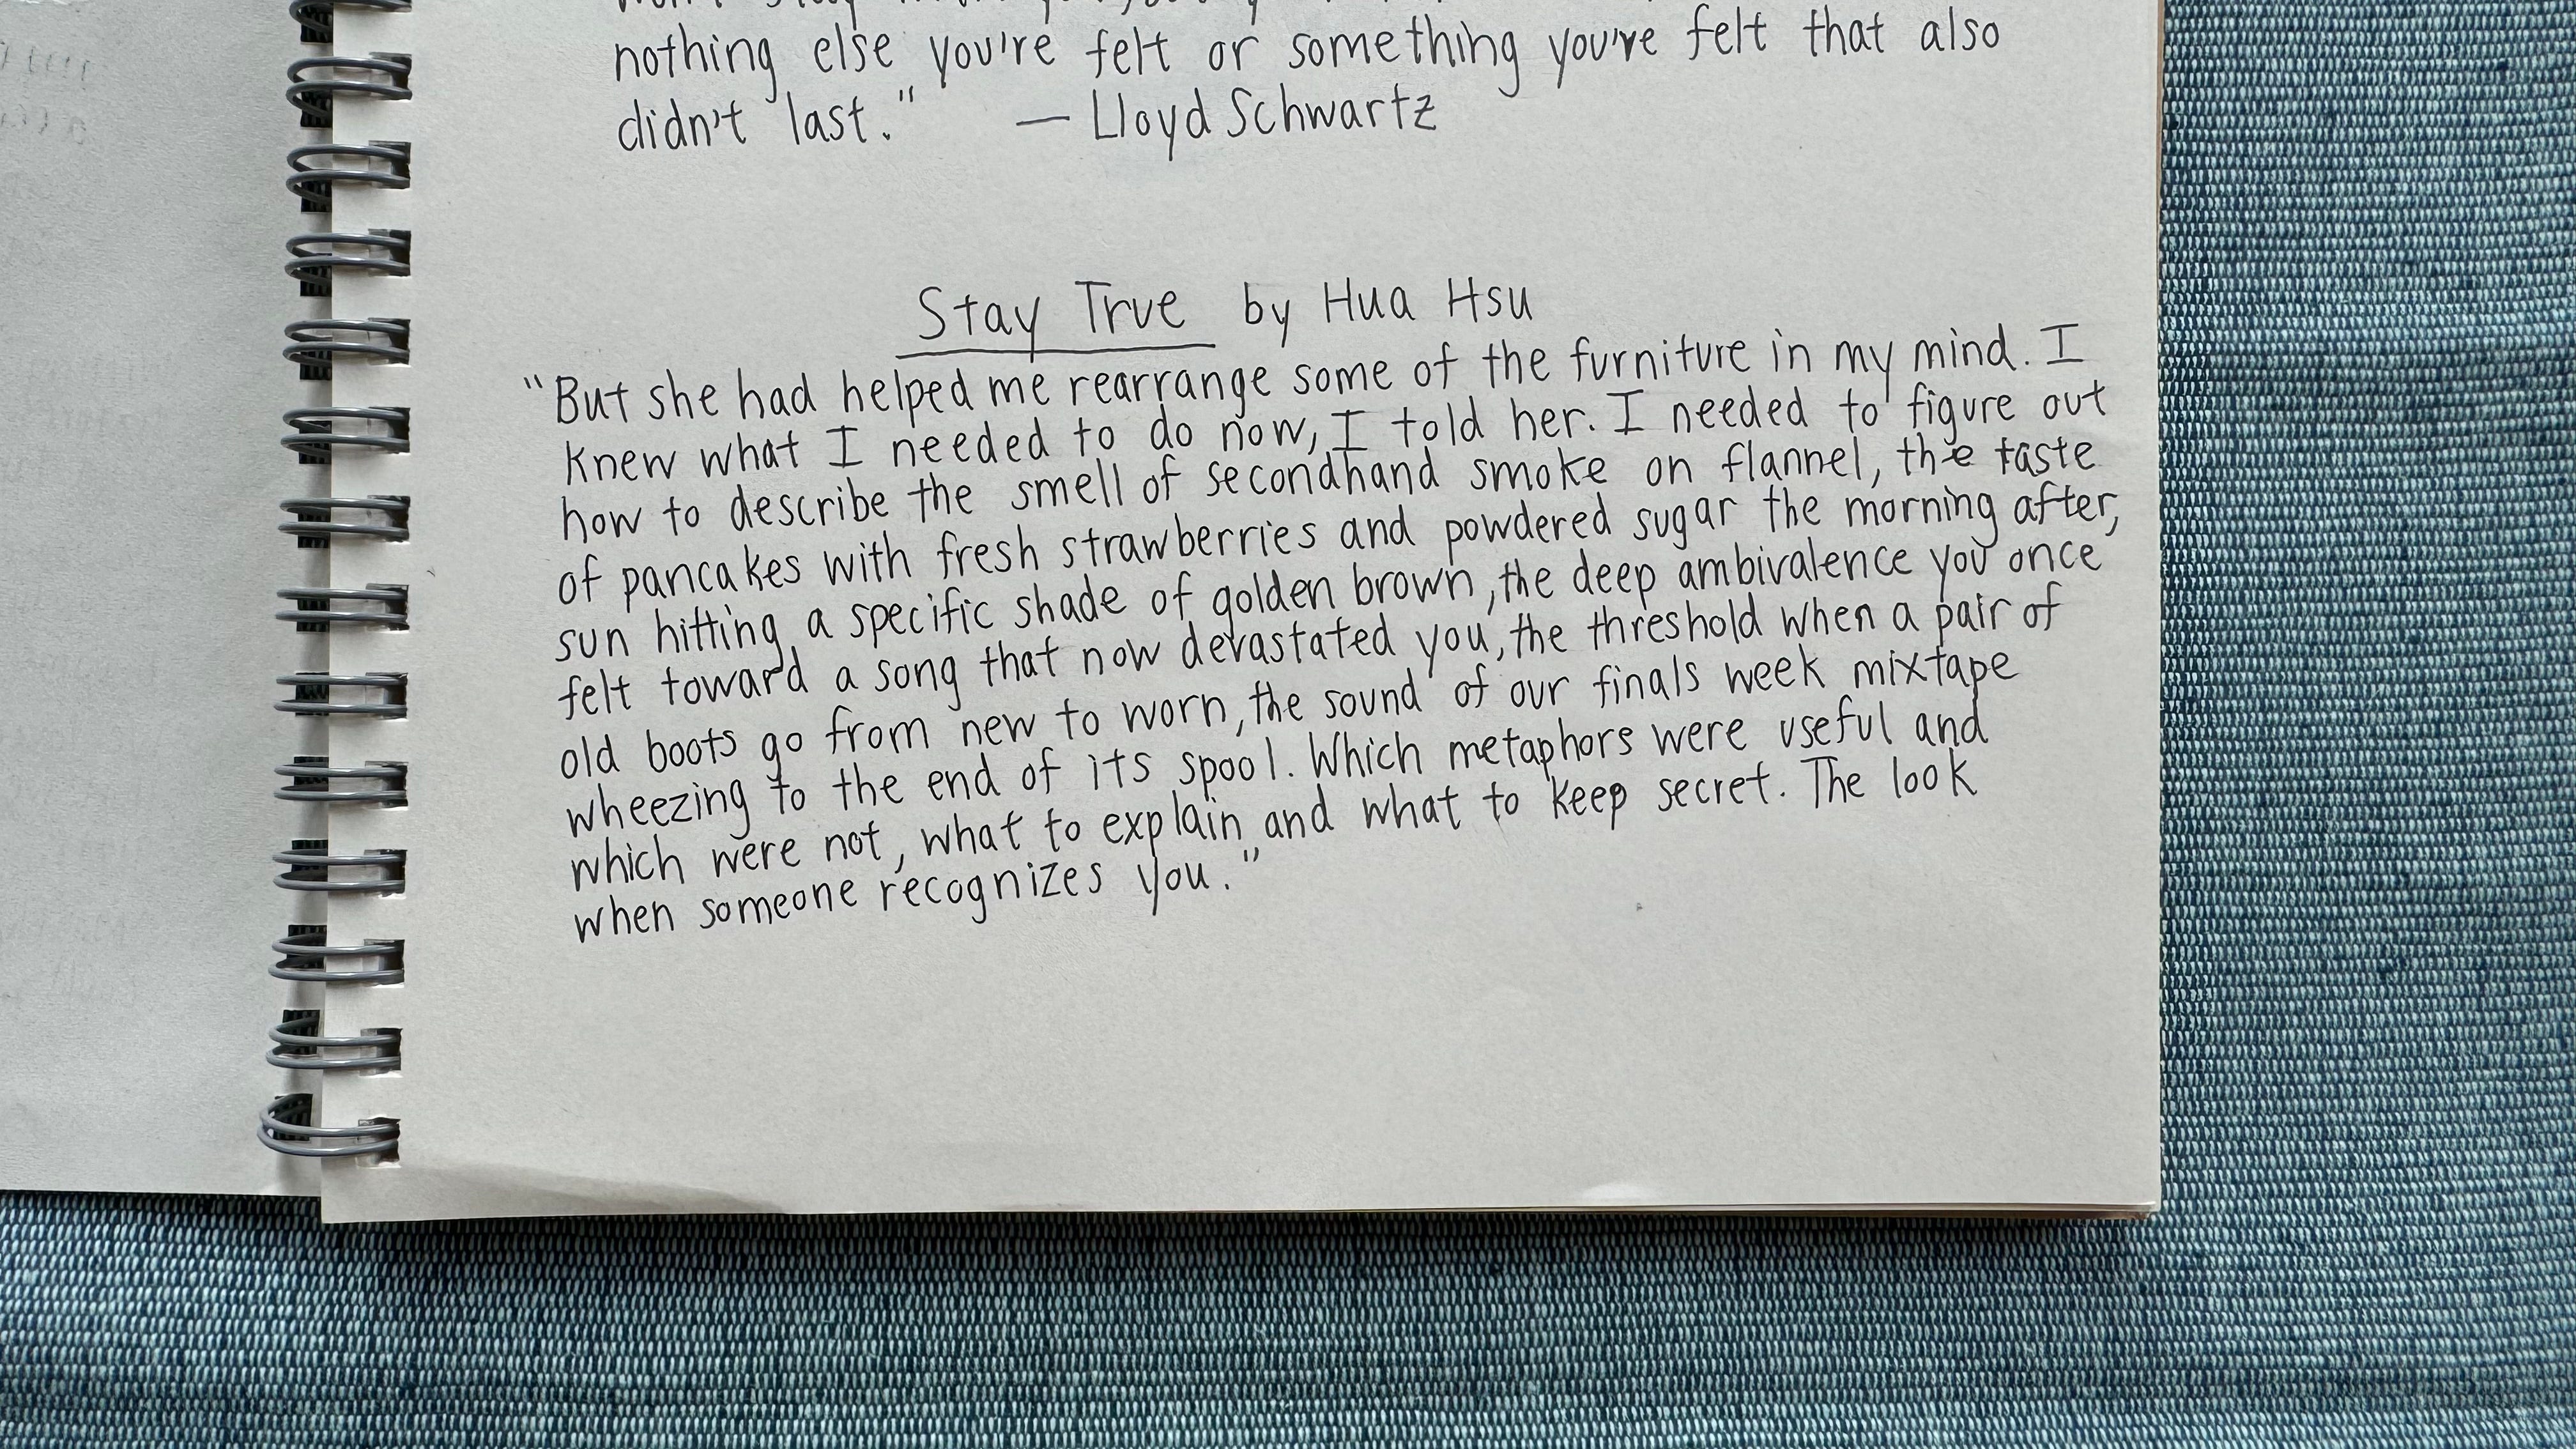 nothing else you're felt or something you've felt that also
didn't last." — Lloyd Schwartz
Stay True by Hua Hsu
"But she had helped me rearrange some of the furniture in my mind. I
knew what I needed to do now, I told her. I needed to figure out
how to describe the smell of secondhand smoke on flannel, the taste
of pancakes with fresh strawberries and powdered sugar the morning after,
sun hitting a specific shade of golden brown, the deep ambivalence you once
felt toward a song that now devastated you, the threshold when a pair of
old boots go from new to worn, the sound of our finals week mixtape
wheezing to the end of its spool. Which metaphors were useful and
which were not, what to explain and what to keep secret. The look
when someone recognizes you."